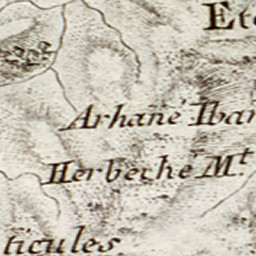 Arhané Ibar
Herbeché M.t
ticules